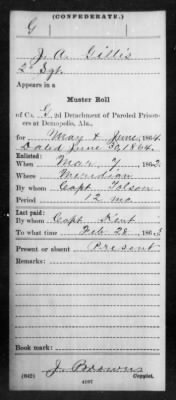 (CONFEDERATE.)
G
J. A. Gillis
2 Sgt.
Appears in a
Muster Roll
of Co. G, 2d Detachment of Paroled Prison-
ers at Demopolis, Ala.,
for May & June, 1864.
Dated June 30, 1864.
Enlisted:
When Mar 7, 1862.
Where Meridian
By whom Capt Tolson
Period 12 mo.
Last paid:
By whom Capt Kent
To what time Feb 28, 1863
Present or absent Present
Remarks:
Book mark:
J. Browns
(642) Copyist.
4097